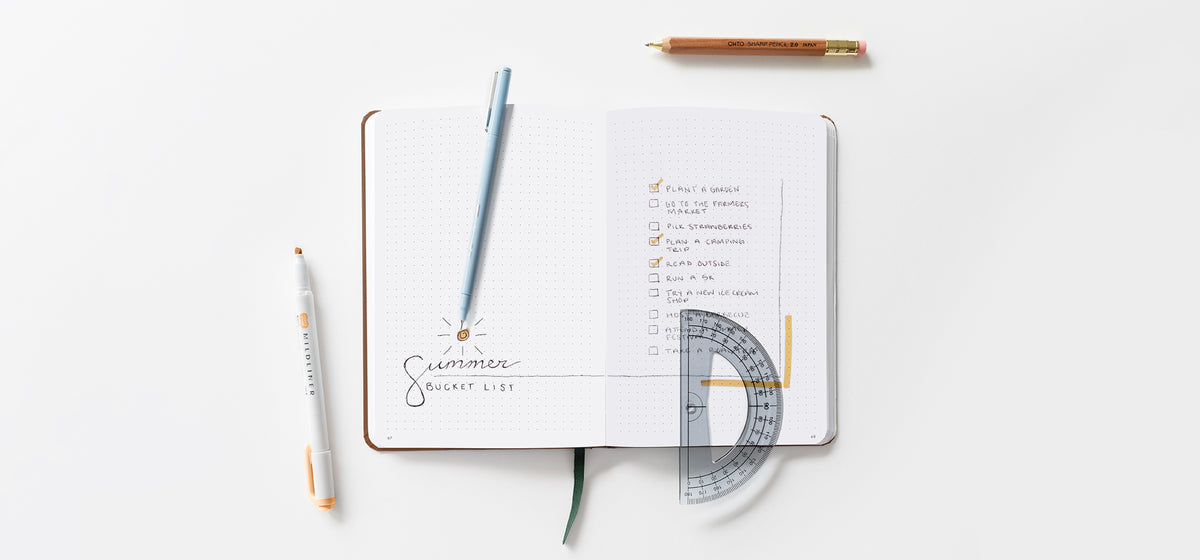 OHTO SHARP PENCIL 2.0 JAPAN
PLANT A GARDEN
GO TO THE FARMERS
MARKET
PICK STRAWBERRIES
PLAN A CAMPING
TRIP
READ OUTSIDE
RUN A 5K
TRY A NEW ICE CREAM
SHOP
HOST A BARBECUE
FESTIVAL
TAKE A
Summer
BUCKET LIST
MILDLINER
67